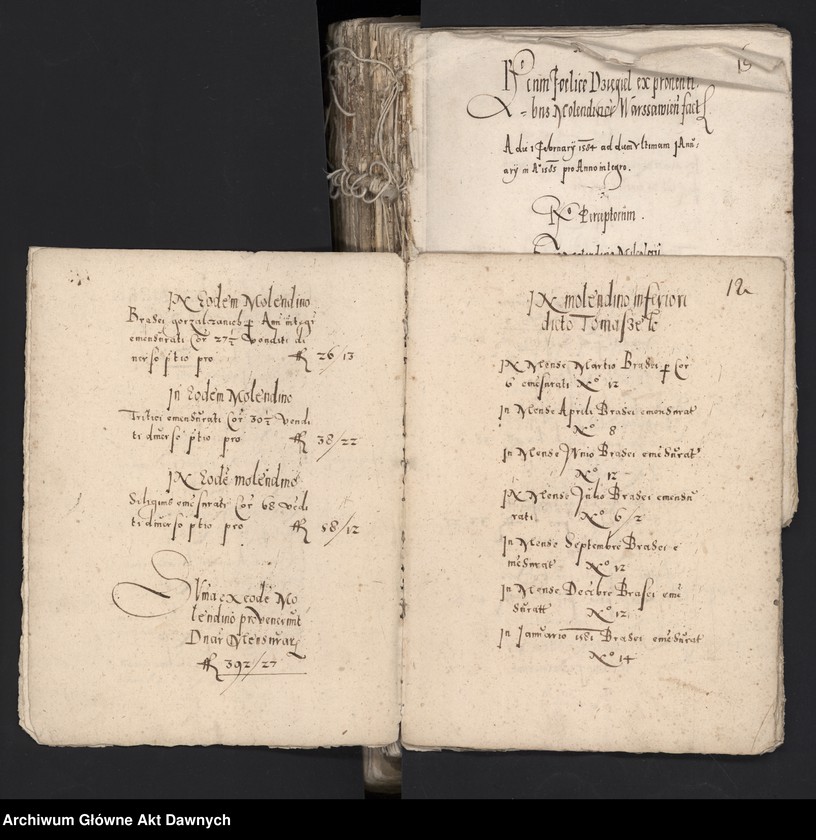 15
R^o cum Foelice Dziegiel ex proventi
bus Molendinor Warssawien fact
A die 1 February 1584 ad diem Ultimam Janu:
ary in A^o 1585 pro Anno integro.
R^o Perceptorum.
In Eodem Molendino
Brasei gorzalczanich Ann integr
emensurati Cor 27½ venditi di
verso ptio pro ff 26/13
In Eodem Molendino
Tritici emensurati Cor 30½ vendi
ti diverso ptio pro ff 38/22
In Eode molendino
Siliginis emesurati Cor 68 vedi
ti diverso ptio pro ff 58/12
Suma ex eode Mo
lendino provenerunt
Dnar Mensurar
ff 392/27
12
In molendino inferiori
dicto Tomaszek
In Mense Martio Brasei Cor
6 emesurati N^o 12
In Mense Aprili Brasei emensurat
N^o 8
In Mense Junio Brasei emesurat
N^o 12
In Mense Julio Brasei emensu
rati N^o 6/2
In Mense Septembre Brasei e
mesurat N^o 12
In Mense Decebre Brasei eme
suratt N^o 12
In Januario 1581 Brasei emesurat
N^o 14
Archiwum Główne Akt Dawnych